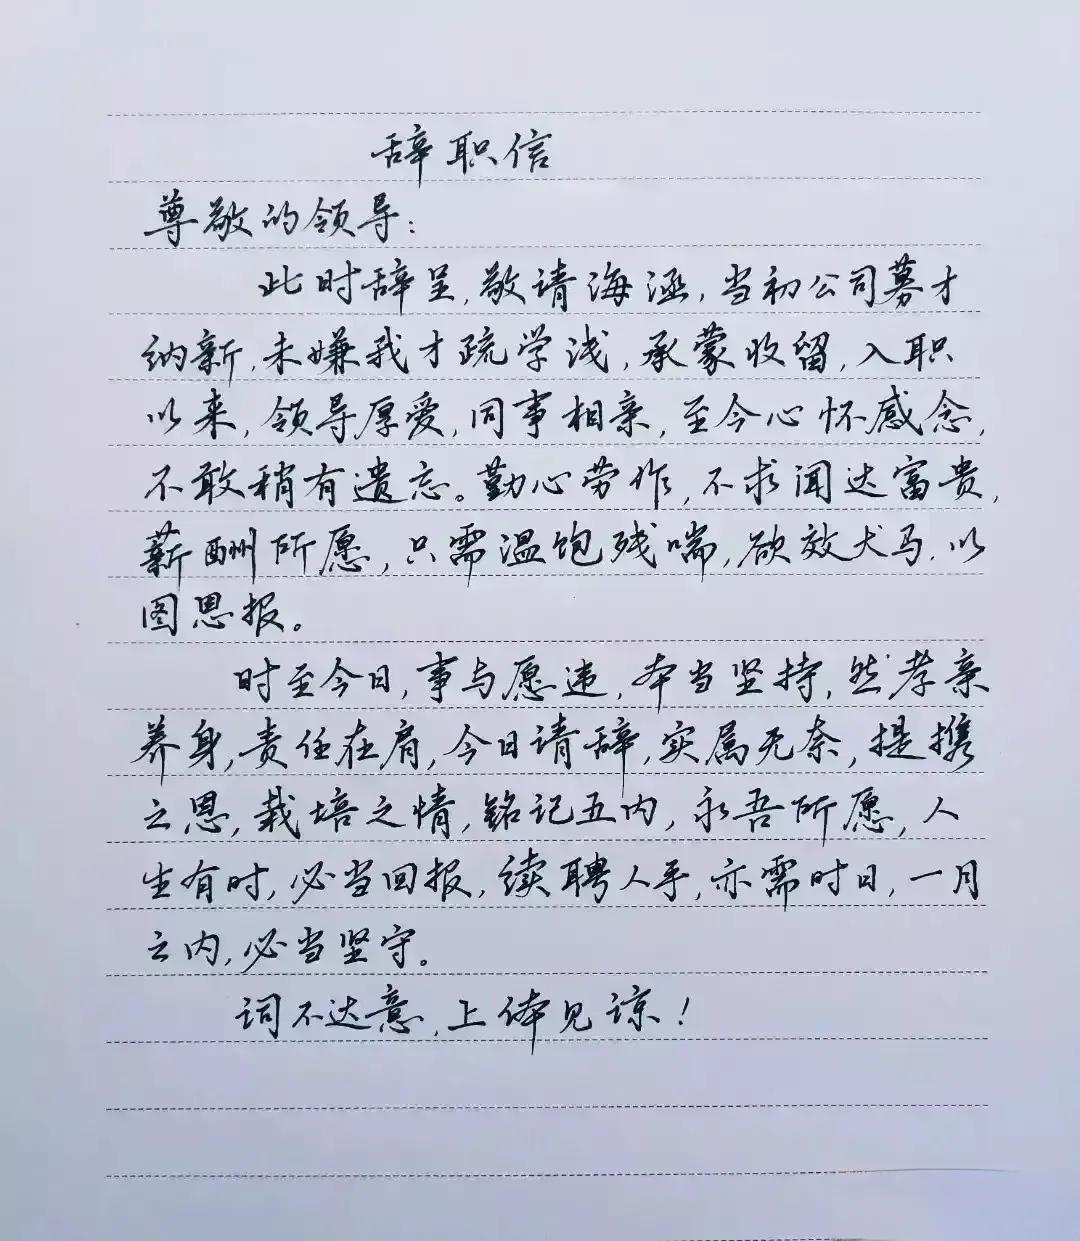 辞职信
尊敬的领导：
此时辞呈，敬请海涵，当初公司募才
纳新，未嫌我才疏学浅，承蒙收留，入职
以来，领导厚爱，同事相亲，至今心怀感念，
不敢稍有遗忘。勤心劳作，不求闻达富贵，
薪酬所愿，只需温饱残喘，欲效犬马，以
图恩报。
时至今日，事与愿违，本当坚持，然孝亲
养身，责任在肩，今日请辞，实属无奈，提携
之恩，栽培之情，铭记五内，永吾所愿，人
生有时，必当回报，续聘人手，亦需时日，一月
之内，必当坚守。
词不达意，上体见谅！